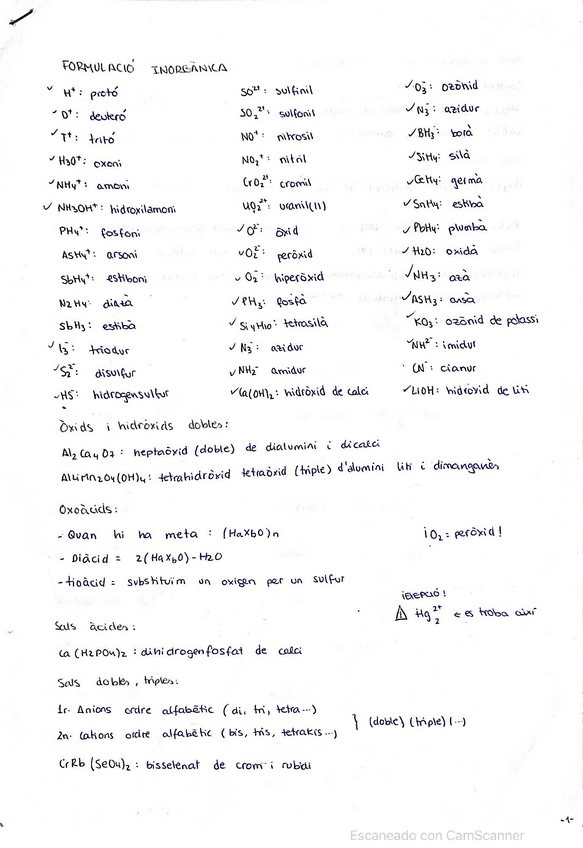 FORMULACIÓ INORGÀNICA
H⁺: protó
D⁺: deuteró
T⁺: tritó
H3O⁺: oxoni
NH4⁺: amoni
NH3OH⁺: hidroxilamoni
PH4⁺: fosfoni
AsH4⁺: arsoni
SbH4⁺: estiboni
N2H4: diazà
SbH3: estibà
I3⁻: triodur
S2²⁻: disulfur
HS⁻: hidrogensulfur
SO²⁺: sulfinil
SO2²⁺: sulfonil
NO⁺: nitrosil
NO2⁺: nitril
CrO2²⁺: cromil
UO2²⁺: uranil(II)
O²⁻: òxid
O2²⁻: peròxid
O2⁻: hiperòxid
PH3: fosfà
Si4H10: tetrasilà
N3⁻: azidur
NH2⁻: amidur
Ca(OH)2: hidròxid de calci
O3⁻: ozònid
N3⁻: azidur
BH3: borà
SiH4: silà
GeH4: germà
SnH4: estibà
PbH4: plumbà
H2O: oxidà
NH3: azà
ASH3: arsà
KO3: ozònid de potassi
NH²⁻: imidur
CN⁻: cianur
LiOH: hidròxid de liti
Òxids i hidròxids dobles:
Al2Ca4O7: heptaòxid (doble) de dialumini i dicalci
AlLiMn2O4(OH)4: tetrahidròxid tetraòxid (triple) d'alumini liti i dimanganès
Oxoàcids:
- Quan hi ha meta: (HaXbO)n
¡O2 = peròxid!
- Diàcid = 2(HaXbO) - H2O
- tioàcid = substituïm un oxigen per un sulfur
¡EXEPCIÓ!
Hg2²⁺ ← es troba així
Sals àcides:
Ca(H2PO4)2: dihidrogenfosfat de calci
Sals dobles, triples:
1r. Anions ordre alfabètic (di, tri, tetra...)
2n. Cations ordre alfabètic (bis, tris, tetrakis...)
} (doble) (triple) (...)
CrRb(SeO4)2: bisselenat de crom i rubidi
-1-
Escaneado con CamScanner